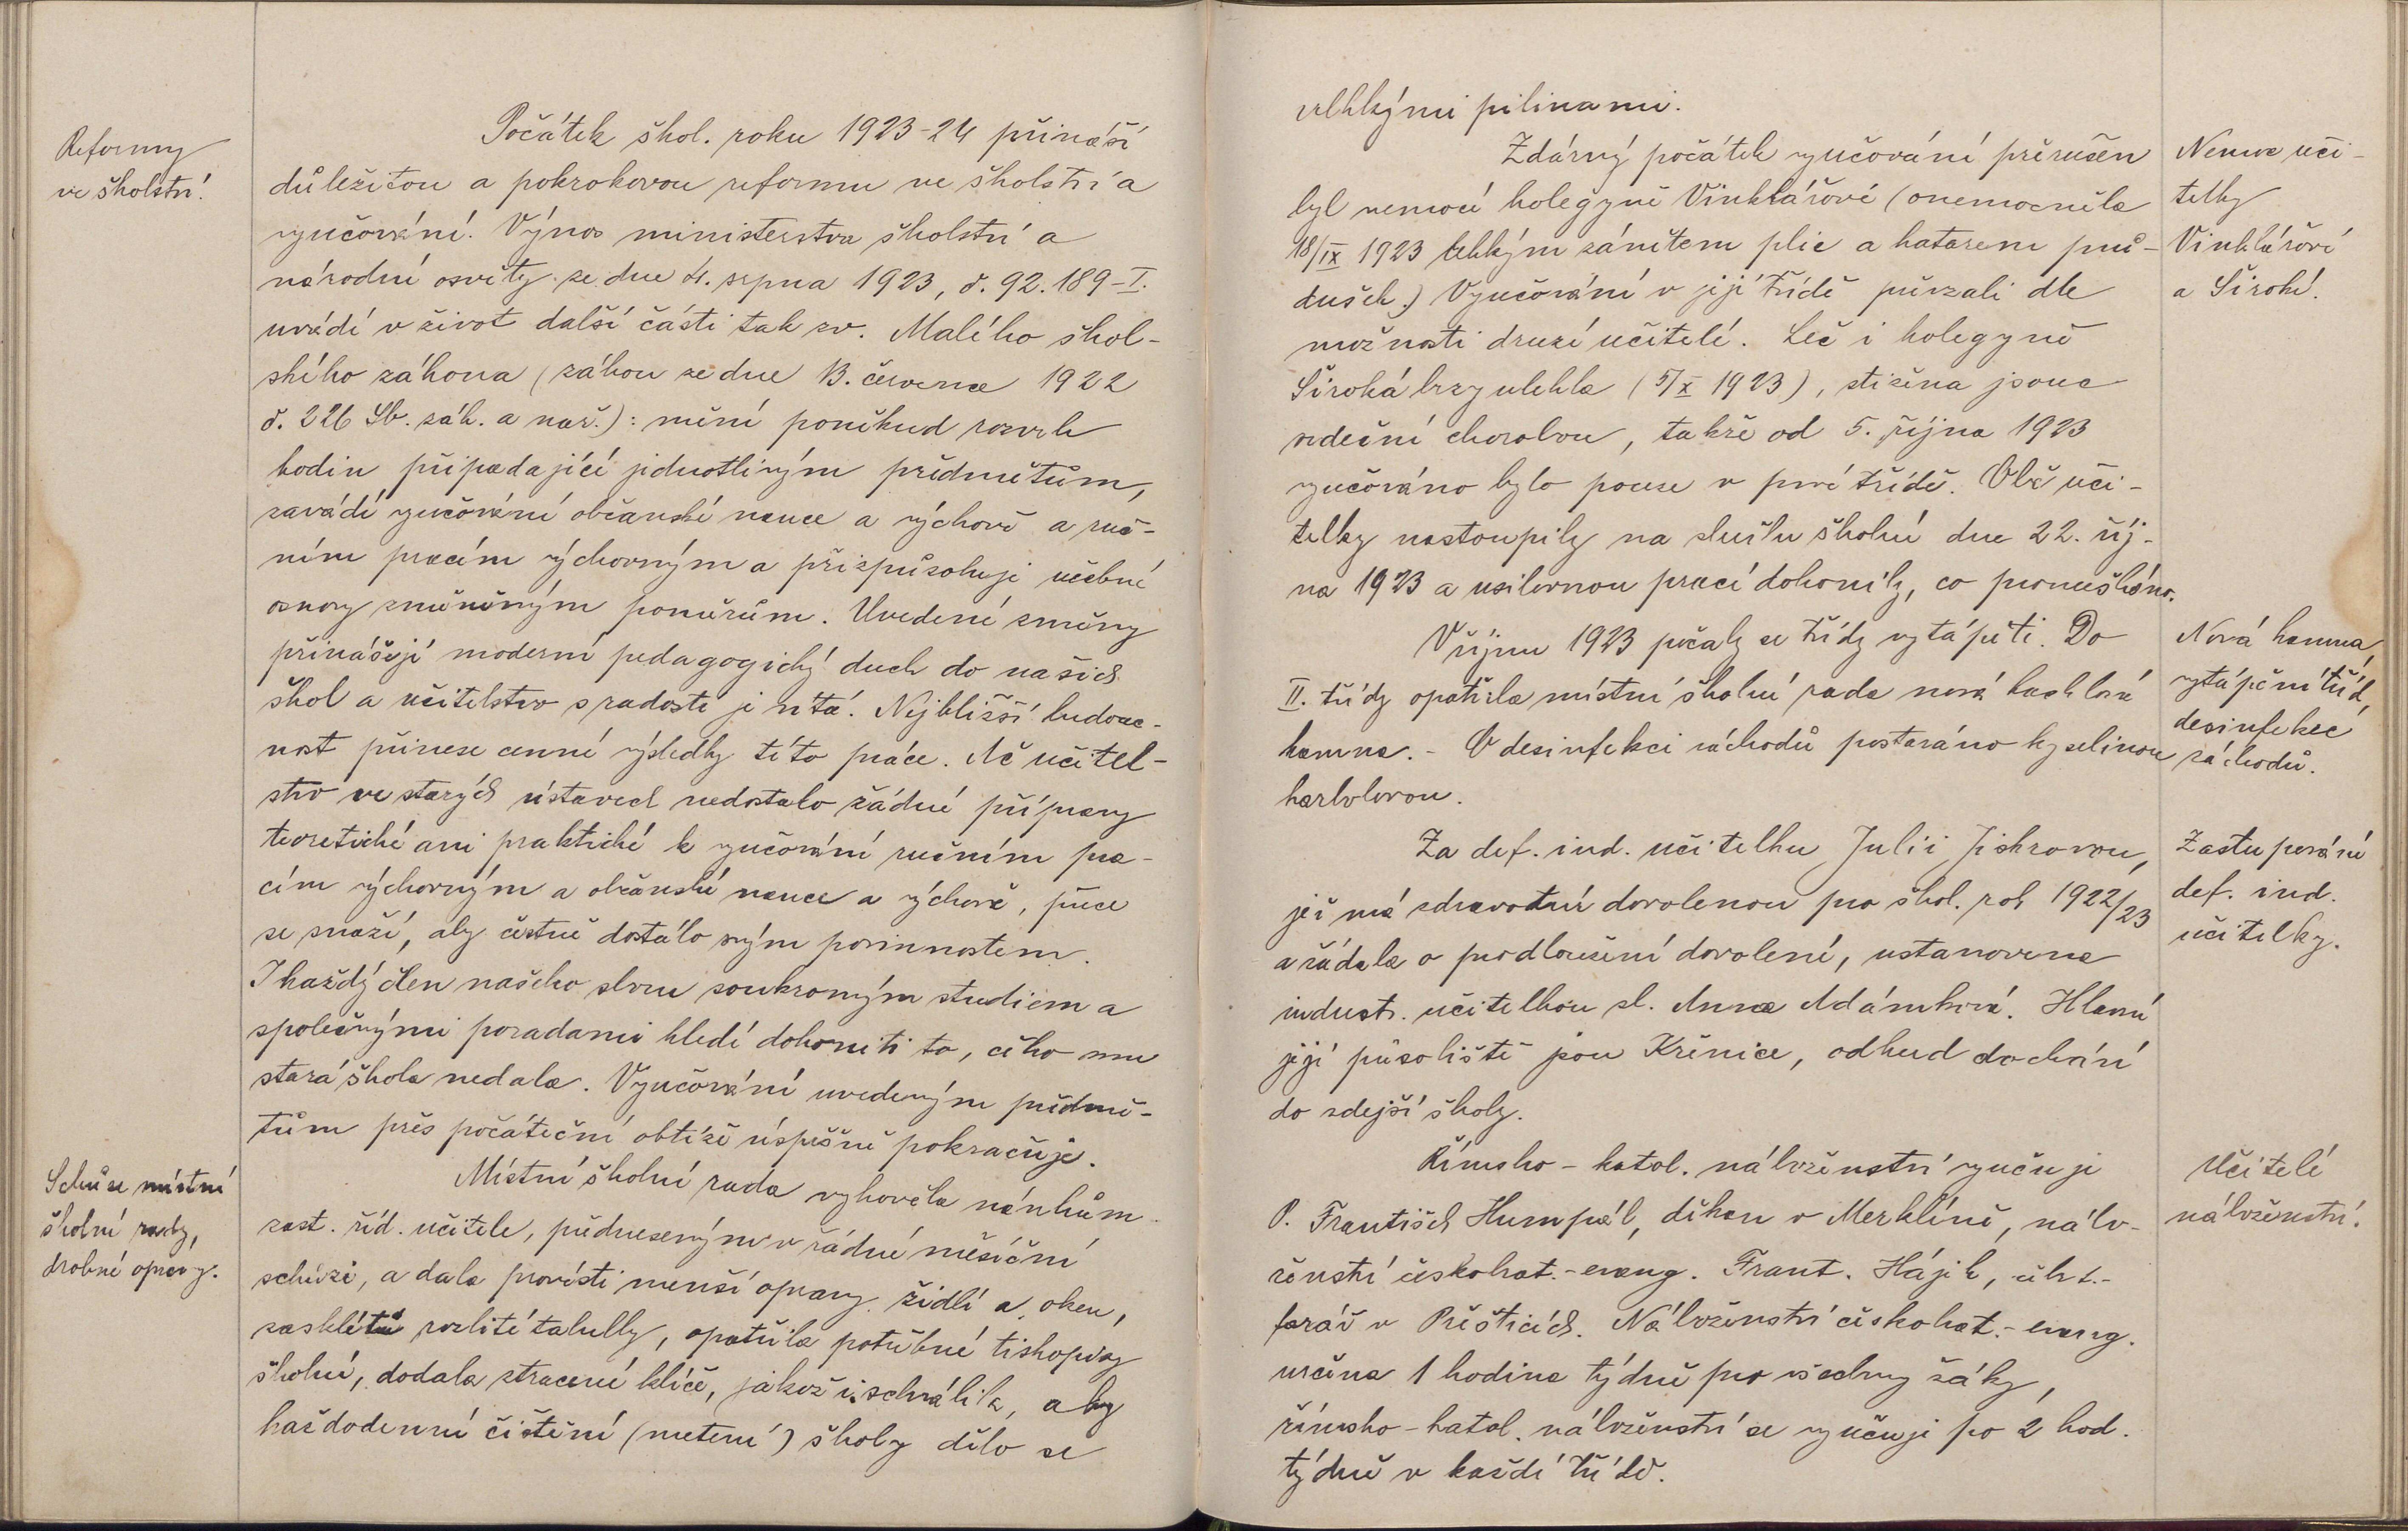 Reformy
ve školství.
Počátek škol. roku 1923-24 přináší
důležitou a pokrokovou reformu ve školství a
vyučování. Výnos ministerstva školství a
národní osvěty ze dne 4. srpna 1923, č. 92.189-I.
uvádí v život další části tak zv. Malého škol-
ského zákona (zákon ze dne 13. července 1922
č. 226 Sb. zák. a nař.): mění poněkud rozvrh
hodin připadající jednotlivým předmětům,
zavádí vyučování občanské nauce a výchově a ruč-
ním pracím výchovným a přizpůsobuje učebné
osnovy změněným poměrům. Uvedené změny
přinášejí moderní pedagogický duch do našich
škol a učitelstvo s radostí je vítá. Nejbližší budouc-
nost přinese cenné výsledky této práce. Ač učitel-
stvo ve starých ústavech nedostalo žádné přípravy
teoretické ani praktické k vyučování ručním pra-
cím výchovným a občanské nauce a výchově, přece
se snaží, aby čestně dostálo svým povinnostem.
I každý člen našeho sboru soukromým studiem a
společnými poradami hledí dohoniti to, čeho mu
stará škola nedala. Vyučování uvedeným předmě-
tům přes počáteční obtíže úspěšně pokračuje.
Schůze místní
školní rady,
drobné opravy.
Místní školní rada vyhověla návrhům
zast. říd. učitele, předneseným v řádné měsíční
schůzi, a dala provésti menší opravy židlí a oken,
zasklíti rozlité tabulky, opatřila potřebné tiskopisy
školní, dodala ztracené klíče, jakož i schválila, aby
každodenní čištění (metení) školy dělo se
vlhkými pilinami.
Zdárný počátek vyučování přerušen
byl nemocí kolegyně Vinklářové (onemocněla
18/IX 1923 lehkým zánětem plic a katarem prů-
dušek.) Vyučování v její třídě převzali dle
možnosti druzí učitelé. Leč i kolegyně
Široká brzy ulehla (5/X 1923), stižena jsouc
srdeční chorobou, takže od 5. října 1923
vyučováno bylo pouze v prvé třídě. Obě uči-
telky nastoupily na službu školní dne 22. říj-
na 1923 a usilovnou prací dohonily, co promeškáno.
Nemoc uči-
telky
Vinklářové
a Široké.
V říjnu 1923 počaly se třídy vytápěti. Do
II. třídy opatřila místní školní rada nová kachlová
kamna. - O desinfekci záchodů postaráno kyselinou
karbolovou.
Nová kamna,
vytápění tříd,
desinfekce
záchodů.
Za def. ind. učitelku Julii Jiskrovou,
jež má zdravotní dovolenou pro škol. rok 1922/23
a žádala o prodloužení dovolené, ustanovena
industr. učitelkou sl. Anna Adámková. Hlavní
její působiště jsou Křenice, odkud dochází
do zdejší školy.
Zastupování
def. ind.
učitelky.
Římsko-katol. náboženství vyučuje
P. František Humpál, děkan v Merklíně, nábo-
ženství českobrat.-evang. Frant. Hájek, evt.-
farář v Přešticích. Náboženství českobrat.-evang.
určena 1 hodina týdně pro všechny žáky,
římsko-katol. náboženství se vyučuje po 2 hod.
týdně v každé třídě.
Učitelé
náboženství.